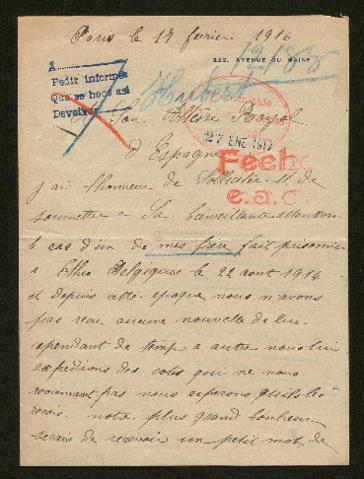 Paris le 17 fevrier 1916
222, AVENUE DU MAINE
A
Pedir informes
Que se haga asi
Devolver
Hubert
Son Altesse Royal
27 ENE 1917
d'Espagne
Fecho
e.a.c.
j'ai l'honneur de Solliciter de
soumettre a Sa bienveillante attention
le cas d'un de mes frere fait prisonnier
a Ethe Belgique le 22 aout 1914
et depuis cette epoque nous n'avons
pas recu aucune nouvelle de lui
cependant de temp a autre nous lui
expedions des colis qui ne nous
reviennent pas nous esperons qu'il les
recois. notre plus grand bonheur
serais de recevoir un petit mot de